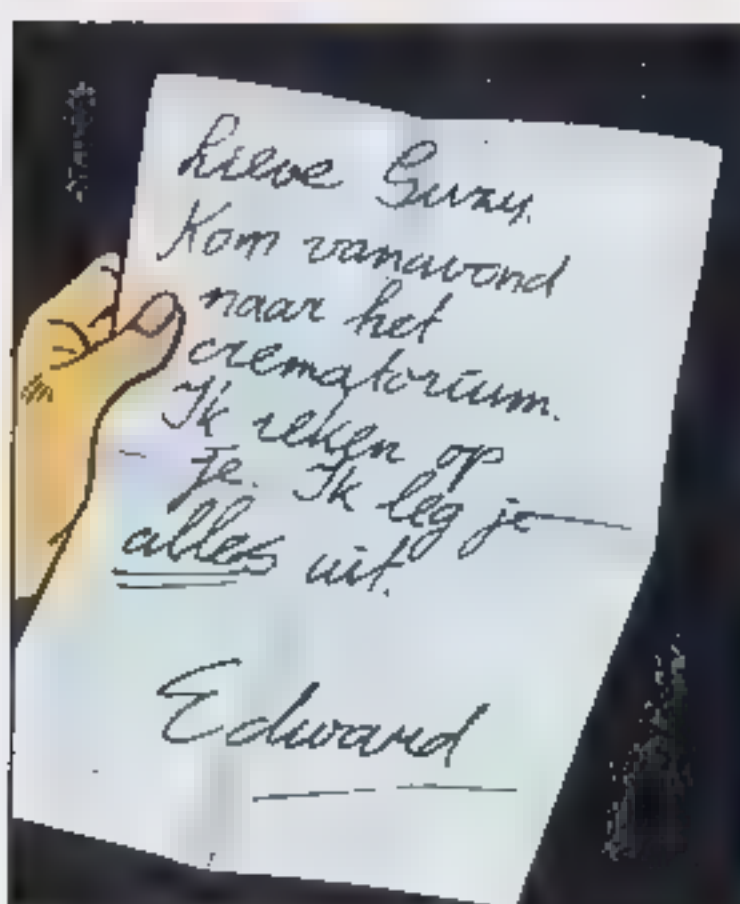 Lieve Suzy.
Kom vanavond
naar het
crematorium.
Ik reken op
je. Ik leg je
alles uit.
Edward